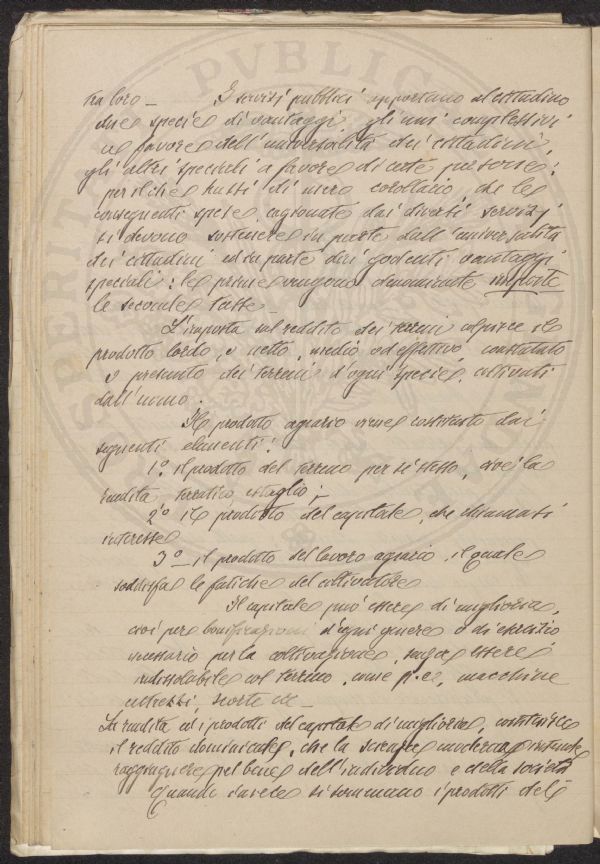 tra loro — I servizi pubblici apportano al cittadino
due specie di vantaggi gli uni complessivi
a favore dell'universalità dei cittadini,
gli altri speciali a favore di certe persone:
per il che trassi di mero corollario che le
conseguenti spese cagionate dai diversi servizi
si devono sostenere in parte dall'universalità
dei cittadini ed in parte dai godenti vantaggi
speciali: le prime vengono denominate imposte
le seconde tasse
L'imposta sul reddito dei terreni colpisce il
prodotto lordo, o netto, medio od effettivo, constatato
o presunto dei terreni d'ogni specie, coltivati
dall'uomo.
Il prodotto agrario viene costituito dai
seguenti elementi:
1º il prodotto del terreno per sì stesso, cioè la
rendita, terratico, estaglio;
2º il prodotto del capitale, che chiamasi
interesse
3º — il prodotto del lavoro agrario, il quale
soddisfa le fatiche del coltivatore
Il capitale può essere di miglioria,
cioè per bonificazioni d'ogni genere o di esercizio
necessario per la coltivazione, senza essere
indissolubile col terreno, come p. es. macchine
attrezzi, scorte ec —
La rendita ed i prodotti del capitale di miglioria, costituisce
il reddito dominicale, che la scienza moderna intende
raggiungere pel bene dell'individuo e della società
Quando invece si sommano i prodotti del